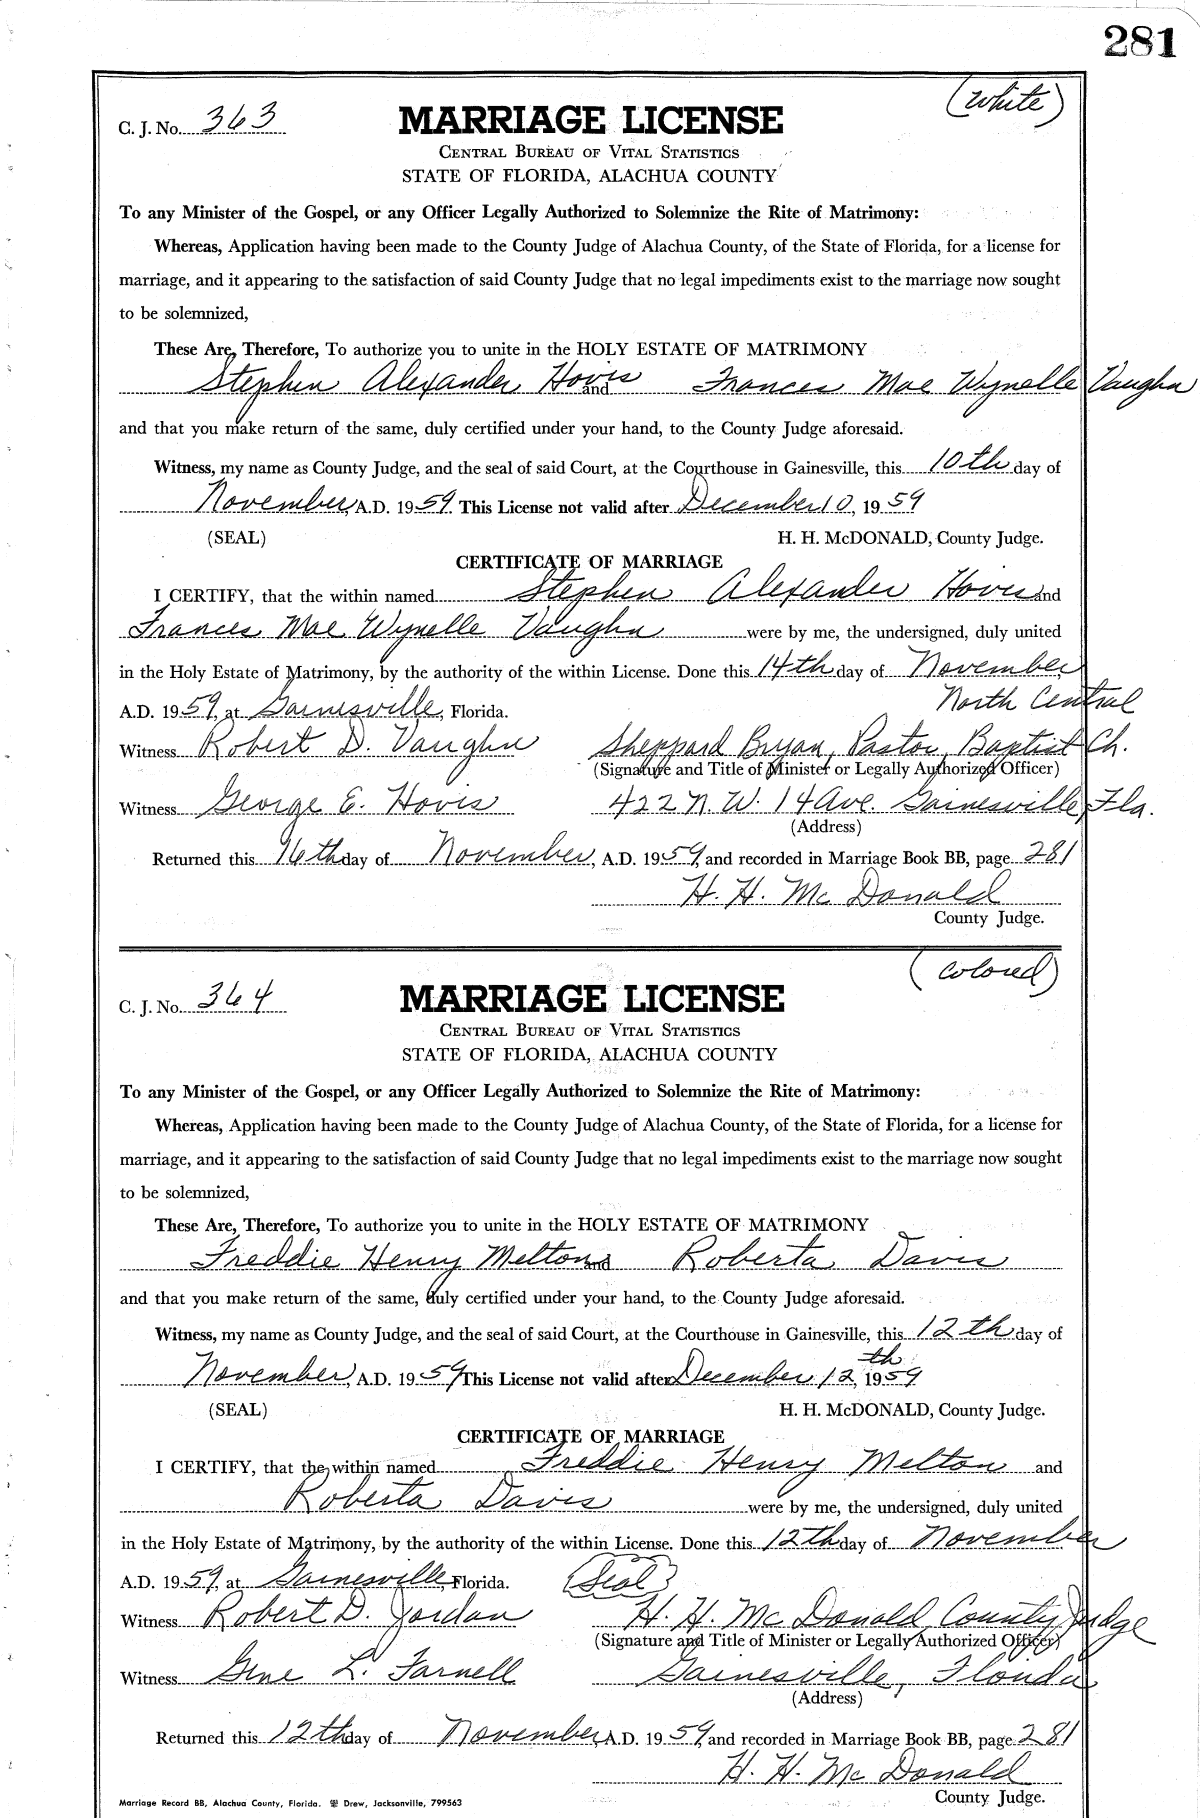 281
(White)
C. J. No. 363
MARRIAGE LICENSE
CENTRAL BUREAU OF VITAL STATISTICS
STATE OF FLORIDA, ALACHUA COUNTY
To any Minister of the Gospel, or any Officer Legally Authorized to Solemnize the Rite of Matrimony:
Whereas, Application having been made to the County Judge of Alachua County, of the State of Florida, for a license for
marriage, and it appearing to the satisfaction of said County Judge that no legal impediments exist to the marriage now sought
to be solemnized,
These Are, Therefore, To authorize you to unite in the HOLY ESTATE OF MATRIMONY
Stephen Alexander Hovis and Frances Mae Wynelle Vaughn
and that you make return of the same, duly certified under your hand, to the County Judge aforesaid.
Witness, my name as County Judge, and the seal of said Court, at the Courthouse in Gainesville, this 10th day of
November, A.D. 1959. This License not valid after December 10, 1959
(SEAL) H. H. McDONALD, County Judge.
CERTIFICATE OF MARRIAGE
I CERTIFY, that the within named Stephen Alexander Hovis and
Frances Mae Wynelle Vaughn were by me, the undersigned, duly united
in the Holy Estate of Matrimony, by the authority of the within License. Done this 14th day of November,
A.D. 1959, at Gainesville, Florida. North Central
Witness Robert D. Vaughn Sheppard Bryan, Pastor, Baptist Ch.
(Signature and Title of Minister or Legally Authorized Officer)
Witness George E. Hovis 422 N. W. 14 Ave. Gainesville, Fla.
(Address)
Returned this 16th day of November, A.D. 1959, and recorded in Marriage Book BB, page 281
H. H. McDonald
County Judge.
(Colored)
C. J. No. 364
MARRIAGE LICENSE
CENTRAL BUREAU OF VITAL STATISTICS
STATE OF FLORIDA, ALACHUA COUNTY
To any Minister of the Gospel, or any Officer Legally Authorized to Solemnize the Rite of Matrimony:
Whereas, Application having been made to the County Judge of Alachua County, of the State of Florida, for a license for
marriage, and it appearing to the satisfaction of said County Judge that no legal impediments exist to the marriage now sought
to be solemnized,
These Are, Therefore, To authorize you to unite in the HOLY ESTATE OF MATRIMONY
Freddie Henry Melton and Roberta Davis
and that you make return of the same, duly certified under your hand, to the County Judge aforesaid.
Witness, my name as County Judge, and the seal of said Court, at the Courthouse in Gainesville, this 12th day of
November, A.D. 1959 This License not valid after December 12th, 1959
(SEAL) H. H. McDONALD, County Judge.
CERTIFICATE OF MARRIAGE
I CERTIFY, that the within named Freddie Henry Melton and
Roberta Davis were by me, the undersigned, duly united
in the Holy Estate of Matrimony, by the authority of the within License. Done this 12th day of November
A.D. 1959, at Gainesville, Florida. (Seal)
Witness Robert D. Jordan H. H. McDonald, County Judge
(Signature and Title of Minister or Legally Authorized Officer)
Witness Gene L. Farnell Gainesville, Florida
(Address)
Returned this 12th day of November, A.D. 1959, and recorded in Marriage Book BB, page 281
H. H. McDonald
County Judge.
Marriage Record BB, Alachua County, Florida. Drew, Jacksonville, 799563